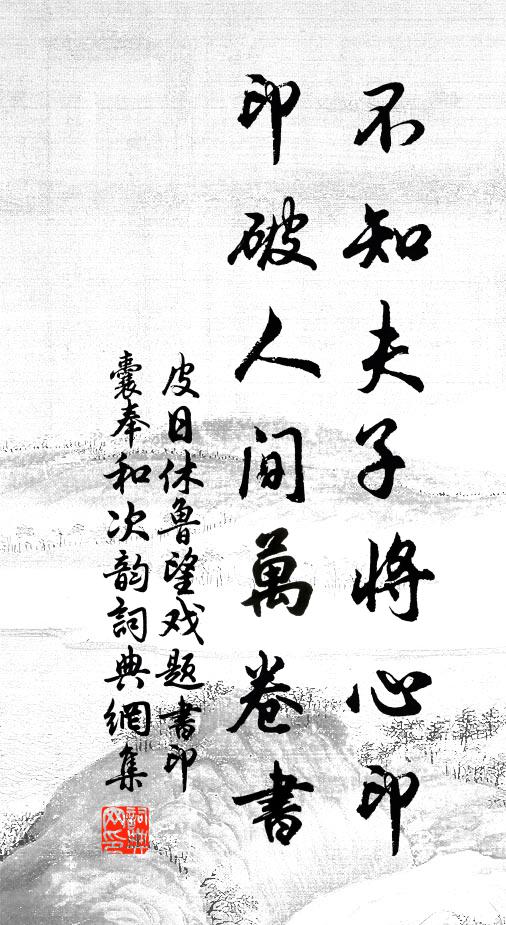 不知夫子將心印
印破人間萬卷書
皮日休魯望戏題書印
囊奉和次韵詞典網集